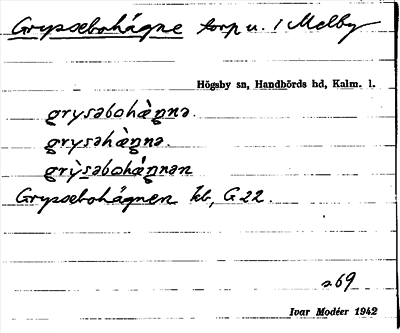 Grypsebohägne torp u. 1 Melby
Högsby sn, Handbörds hd, Kalm. l.
grysəbohàŋnə.
grysəhàŋnə.
grỳsəbohàŋnən
Grypsebohägnen kb, G22.
s69
Ivar Modéer 1942